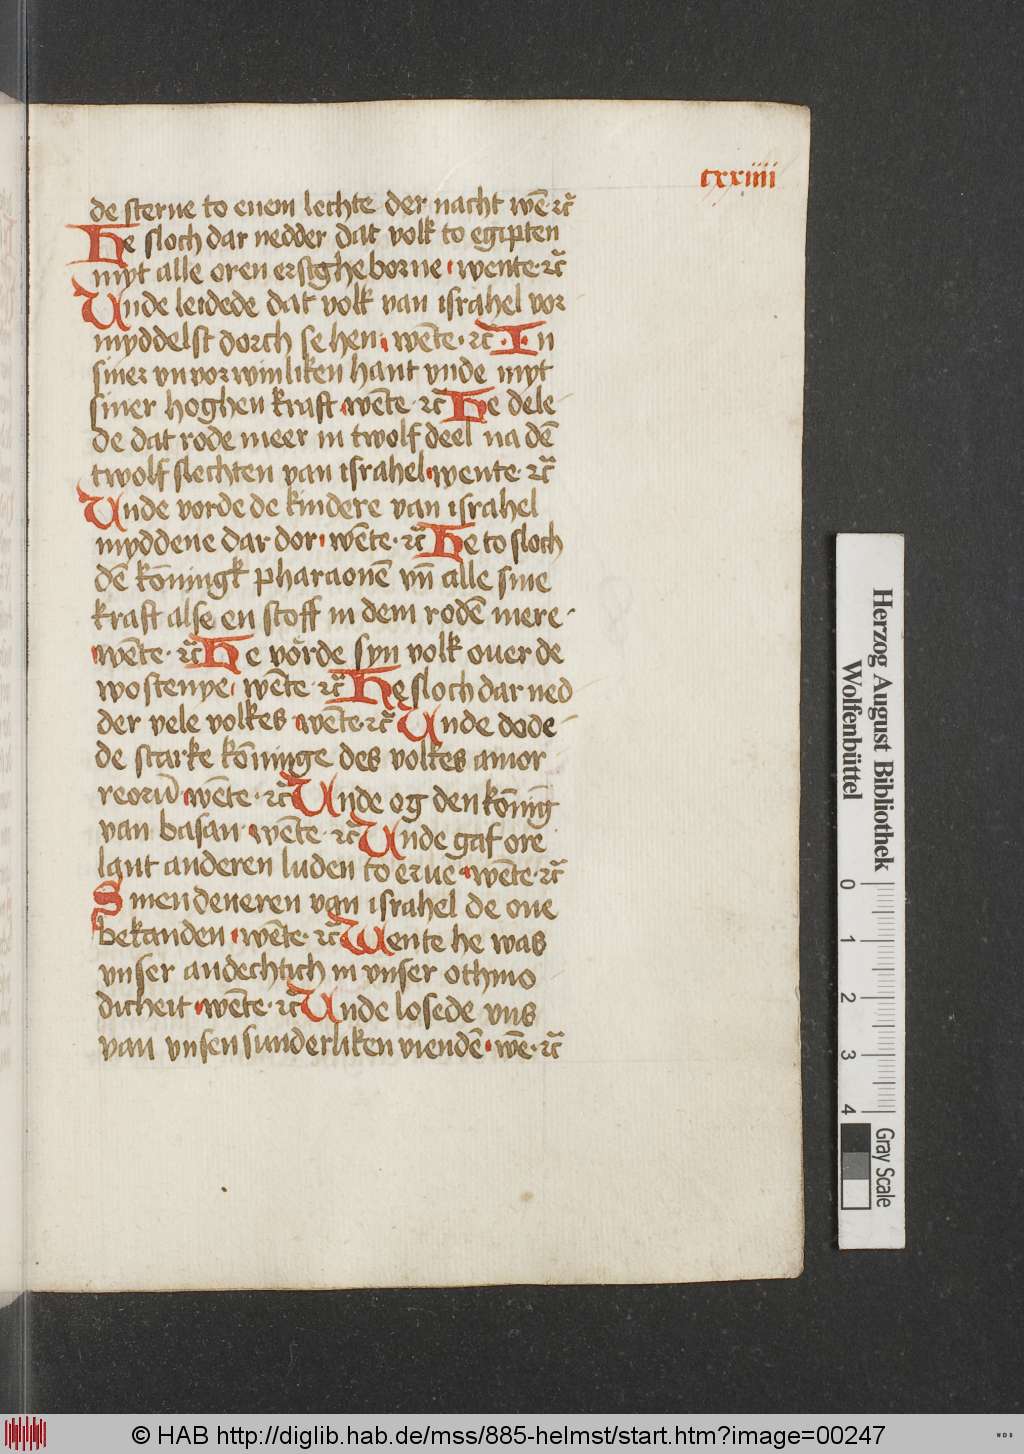 cxxiiii
de sterne to enem lechte der nacht wē ꝛc̄
He sloch dar nedder dat volk to egipten
myt alle oren erstgheborne · wente · ꝛc̄
Unde leidede dat volk van israhel vor
myddelst dorch se hen · wēte · ꝛc · In
siner vnvorwinliken hant vnde myt
siner hoghen kraft · wēte · ꝛc He dele
de dat rode meer in twolf deel na dē
twolf slechten van israhel · wente · ꝛc̄
Unde vorde de kindere van israhel
myddene dar dor · wēte · ꝛc̄ He to sloch
dē kōningk pharaonē vn̄ alle sine
kraft alse en stoff in dem rodē mere ·
· wēte · ꝛc̄ He vörde syn volk ouer de
wostenye · wēte · ꝛc̄ He sloch dar ned
der vele volkes · wēte · ꝛc̄ Unde dode
de starke kōninge des volkes amor
reorū · wēte · ꝛc̄ Unde og den kōnīg
van basan · wēte · ꝛc̄ Unde gaf ore
lant anderen luden to eruē · wēte · ꝛc̄
Sinen deneren van israhel de one
bekanden · wēte · ꝛc̄ Wente he was
vnser andechtich in vnser othmo
dicheit · wēte · ꝛc̄ Unde losede vns
van vnsen sunderliken viendē · wē · ꝛc̄
Herzog August Bibliothek
Wolfenbüttel
0 1 2 3 4
Gray Scale
© HAB http://diglib.hab.de/mss/885-helmst/start.htm?image=00247